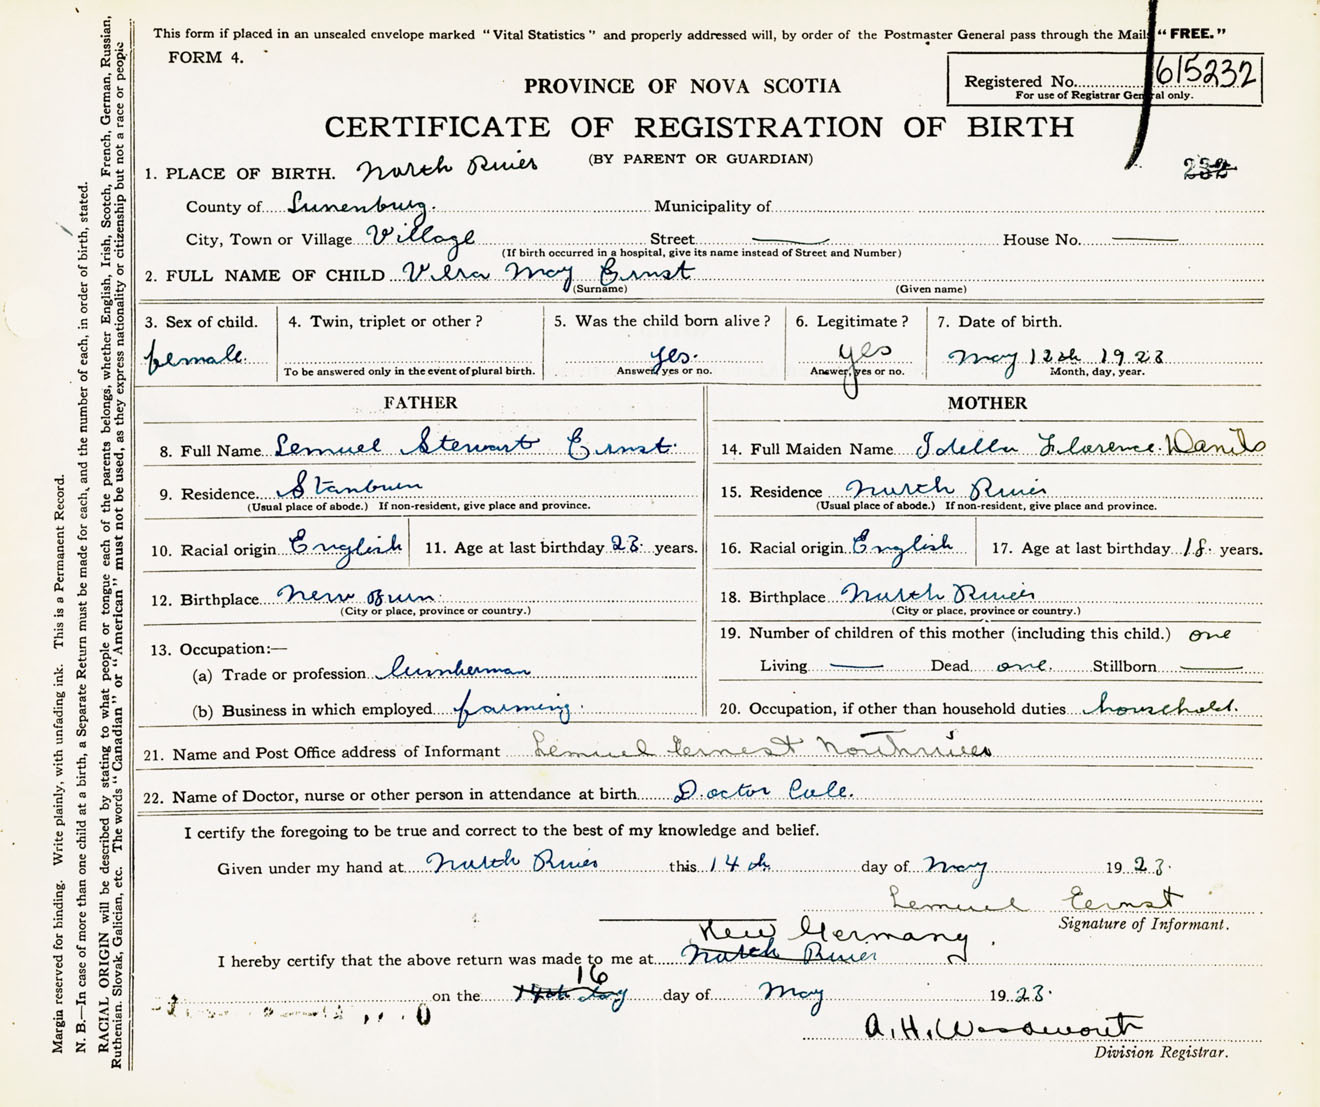 This form if placed in an unsealed envelope marked "Vital Statistics" and properly addressed will, by order of the Postmaster General pass through the Mails "FREE."
FORM 4.
Registered No. 615232
For use of Registrar General only.
PROVINCE OF NOVA SCOTIA
CERTIFICATE OF REGISTRATION OF BIRTH
(BY PARENT OR GUARDIAN)
232
1. PLACE OF BIRTH. North River
County of Lunenburg. Municipality of
City, Town or Village Village Street House No.
(If birth occurred in a hospital, give its name instead of Street and Number)
2. FULL NAME OF CHILD Velra May Ernst
(Surname) (Given name)
3. Sex of child. 4. Twin, triplet or other? 5. Was the child born alive? 6. Legitimate? 7. Date of birth.
female. yes. yes May 12th 1923
To be answered only in the event of plural birth. Answer, yes or no. Answer, yes or no. Month, day, year.
FATHER
8. Full Name Lemuel Stewart Ernst.
9. Residence
(Usual place of abode.) If non-resident, give place and province.
10. Racial origin English 11. Age at last birthday 23. years.
12. Birthplace New
(City or place, province or country.)
13. Occupation:—
(a) Trade or profession lumberman
(b) Business in which employed farming.
MOTHER
14. Full Maiden Name Idella Florence
15. Residence North River
(Usual place of abode.) If non-resident, give place and province.
16. Racial origin English 17. Age at last birthday 18. years.
18. Birthplace North River
(City or place, province or country.)
19. Number of children of this mother (including this child.) one
Living Dead one. Stillborn
20. Occupation, if other than household duties household.
21. Name and Post Office address of Informant Lemuel Ernest Northriver
22. Name of Doctor, nurse or other person in attendance at birth Doctor Cole.
I certify the foregoing to be true and correct to the best of my knowledge and belief.
Given under my hand at North River this 14th day of May 1923.
Lemuel Eernst
Signature of Informant.
New Germany.
I hereby certify that the above return was made to me at North River
16
on the 14th day day of May 1923.
A. H. Woodworth
Division Registrar.
Margin reserved for binding. Write plainly, with unfading ink. This is a Permanent Record.
N. B.—In case of more than one child at a birth, a Separate Return must be made for each, and the number of each, in order of birth, stated.
RACIAL ORIGIN will be described by stating to what people or tongue each of the parents belongs, whether English, Irish, Scotch, French, German, Russian,
Ruthenian. Slovak, Galician, etc. The words "Canadian" or "American" must not be used, as they express nationality or citizenship but not a race or people